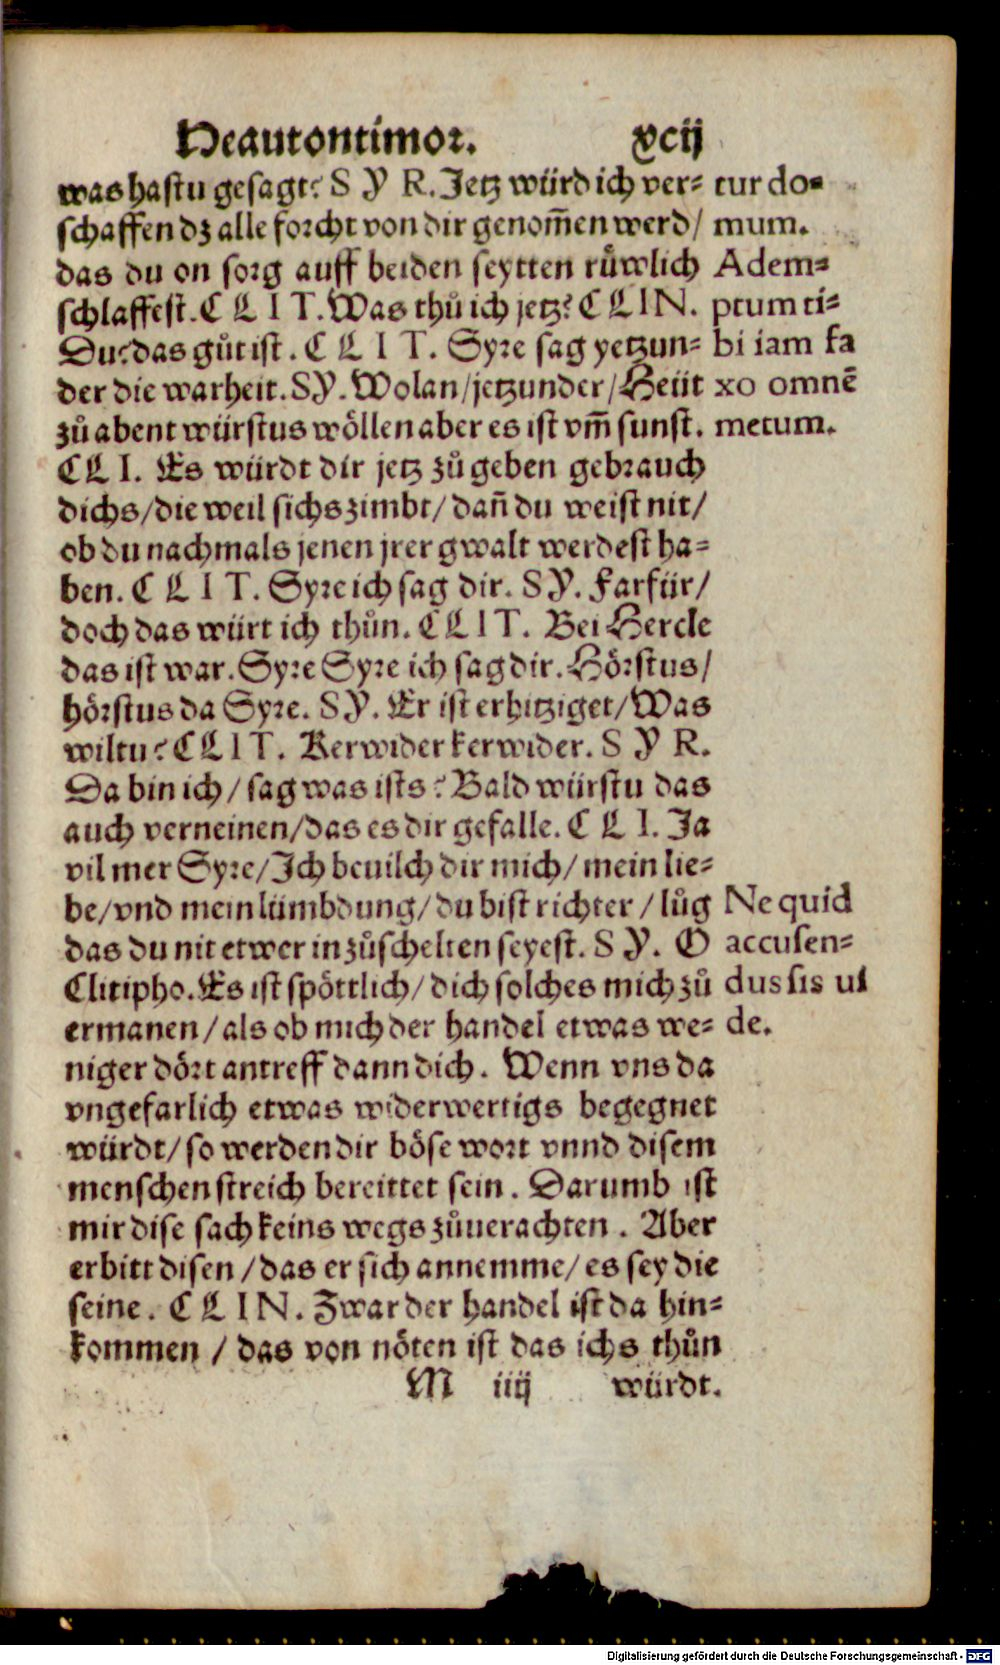 Heautontimor. xcij
was hastu gesagt? S Y R. Jetz würd ich ver-
schaffen dz alle forcht von dir genom̃en werd/
das du on sorg auff beiden seytten růwlich
schlaffest. C L I T. Was thů ich jetz? C L I N.
Du? das gůt ist. C L I T. Syre sag yetzun-
der die warheit. S Y. Wolan/jetzunder/Heüt
zů abent würstus wöllen aber es ist vm̃ sunst.
C L I. Es würdt dir jetz zů geben gebrauch
dichs/die weil sichs zimbt/dañ du weist nit/
ob du nachmals jenen jrer gwalt werdest ha-
ben. C L I T. Syre ich sag dir. S Y. Farfür/
doch das würt ich thůn. C L I T. Bei Hercle
das ist war. Syre Syre ich sag dir. Hörstus/
hörstus da Syre. S Y. Er ist erhitziget/Was
wiltu? C L I T. Kerwider kerwider. S Y R.
Da bin ich/sag was ists? Bald würstu das
auch verneinen/das es dir gefalle. C L I. Ja
vil mer Syre/Ich beuilch dir mich/mein lie-
be/vnd mein lümbdung/du bist richter/lůg
das du nit etwer in zůschelten seyest. S Y. O
Clitipho. Es ist spöttlich/dich solches mich zů
ermanen/als ob mich der handel etwas we-
niger dört antreff dann dich. Wenn vns da
vngefarlich etwas widerwertigs begegnet
würdt/so werden dir böse wort vnnd disem
menschen streich bereittet sein. Darumb ist
mir dise sach keins wegs zůuerachten. Aber
erbitt disen/das er sich annemme/es sey die
seine. C L I N. Zwar der handel ist da hin-
kommen/das von nöten ist das ichs thůn
M iiij würdt.
tur do-
mum.
Adem-
ptum ti-
bi iam fa
xo omnē
metum.
Ne quid
accusen-
dus sis ui
de.
Digitalisierung gefördert durch die Deutsche Forschungsgemeinschaft - DFG